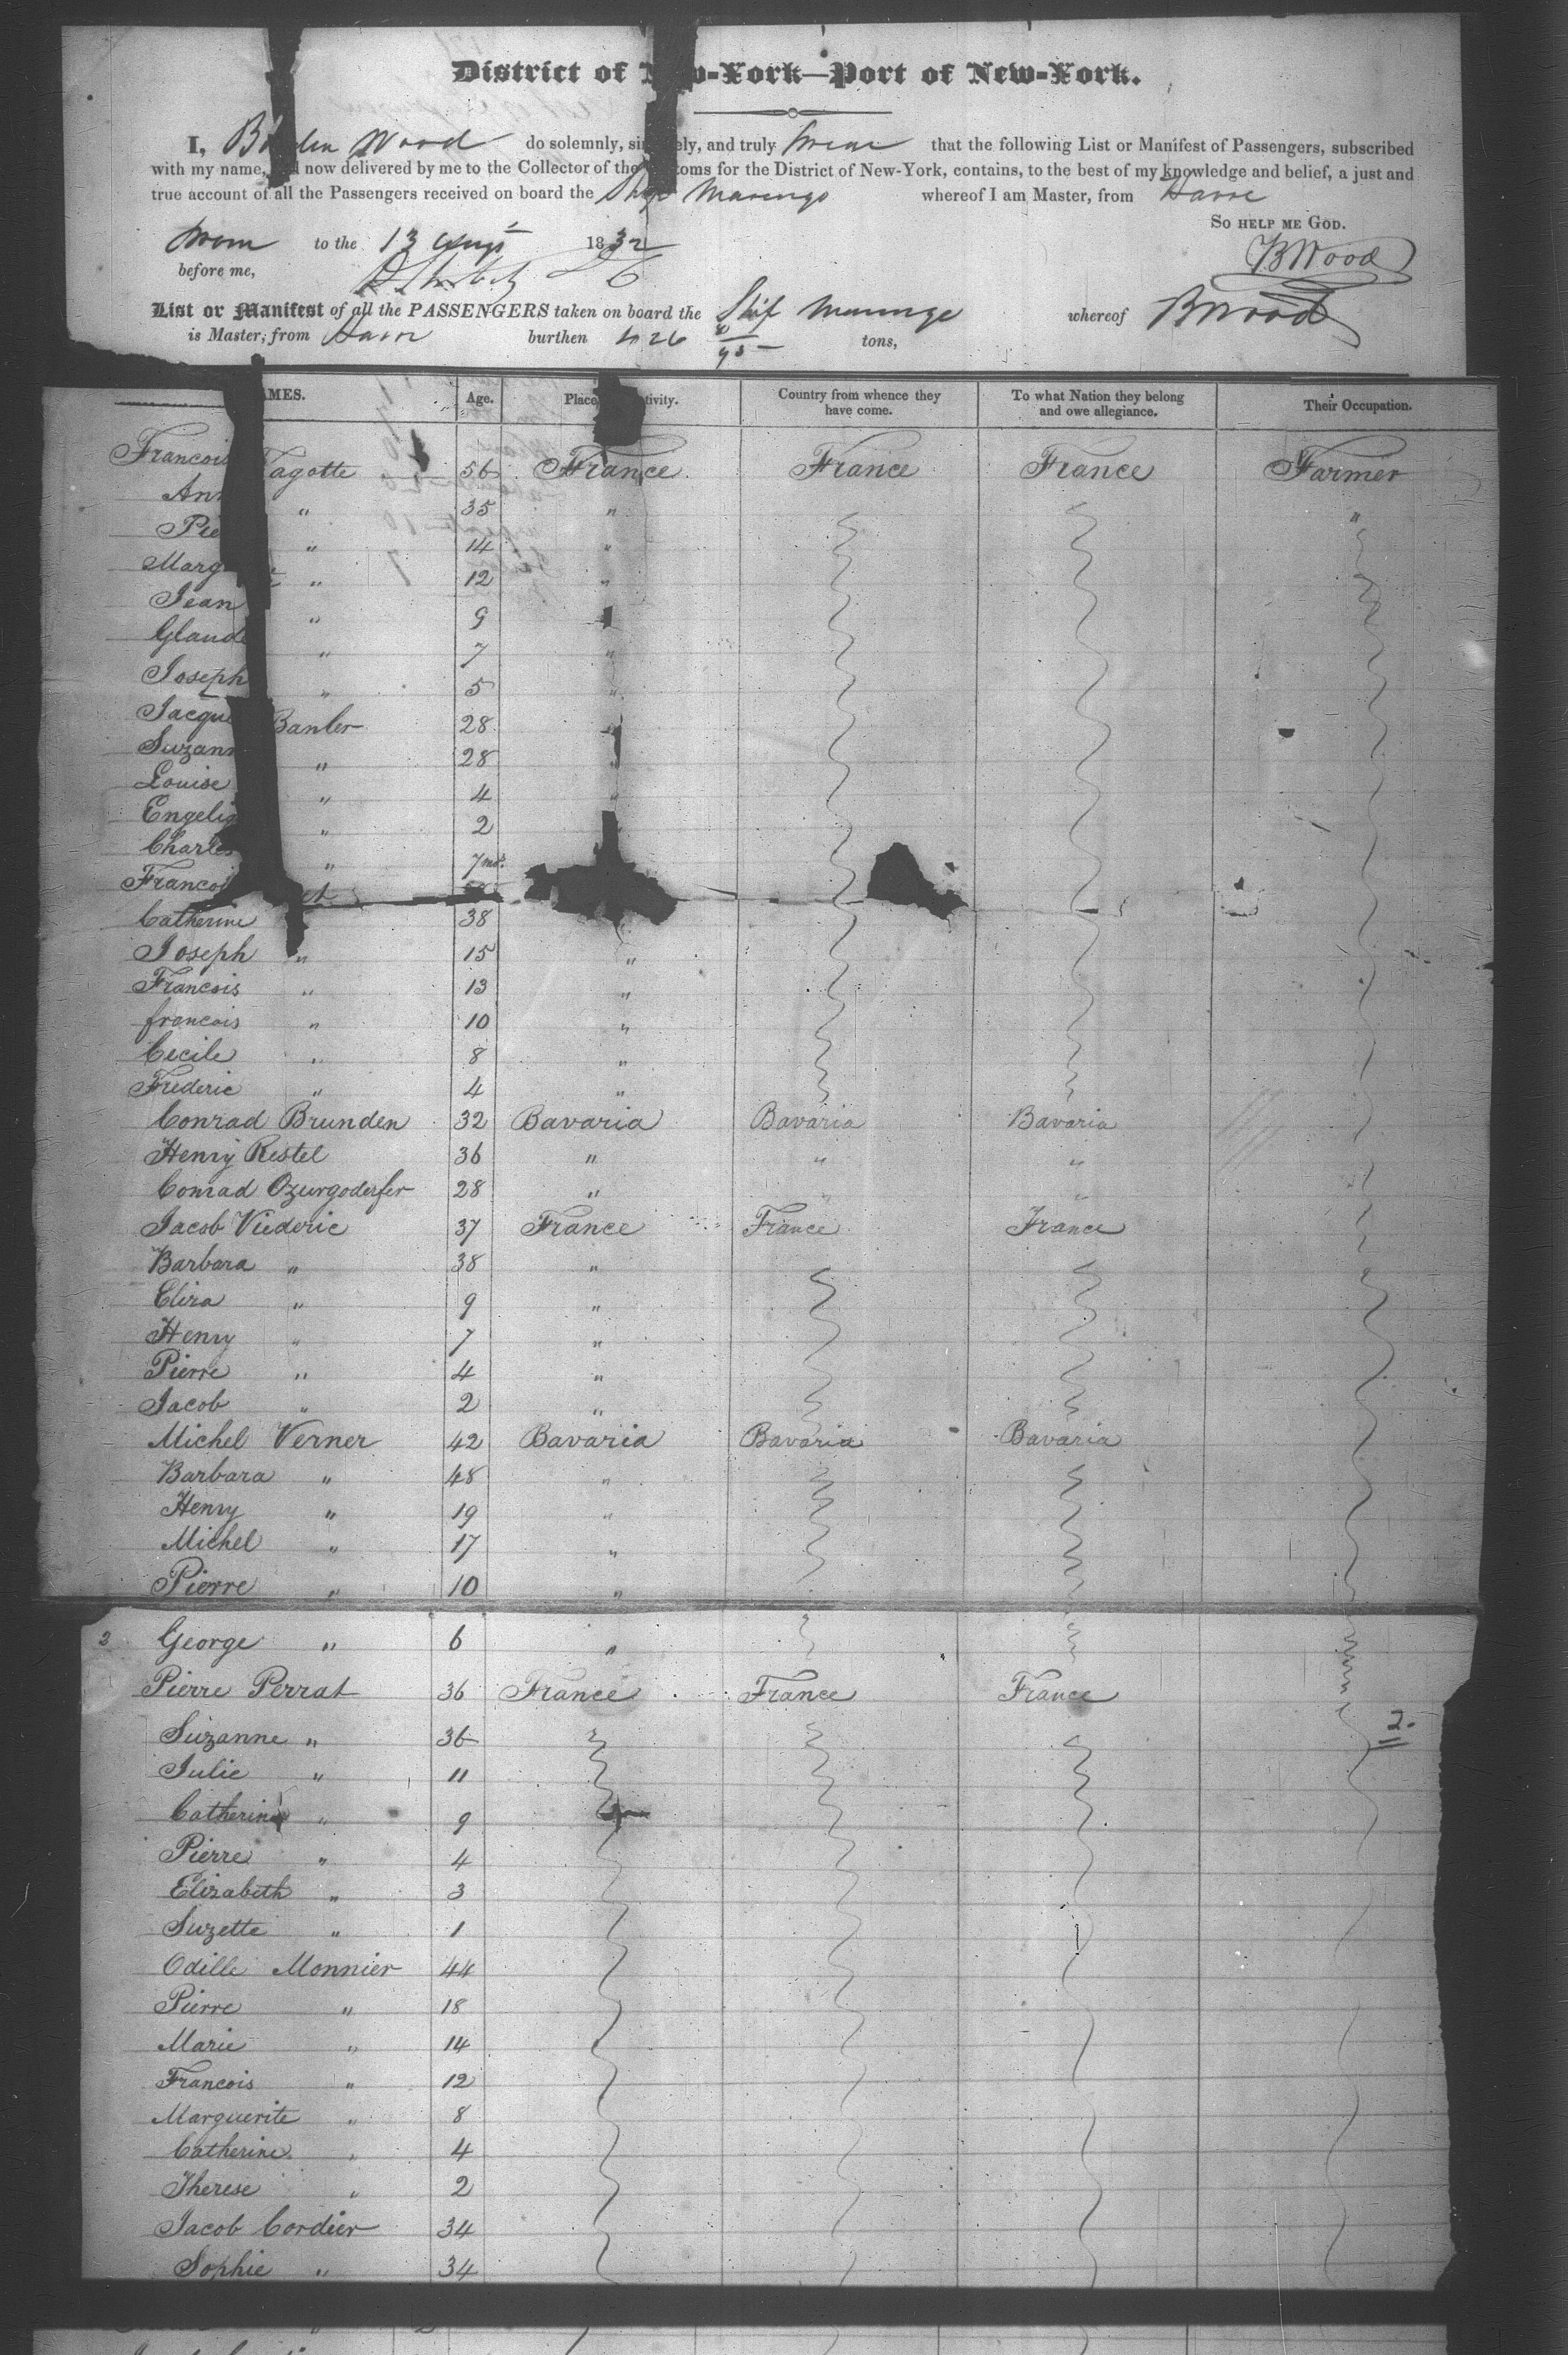 District of New-York—Port of New-York.
I, B Wood do solemnly, sincerely, and truly swear that the following List or Manifest of Passengers, subscribed
with my name, and now delivered by me to the Collector of the Customs for the District of New-York, contains, to the best of my knowledge and belief, a just and
true account of all the Passengers received on board the Ship Marengo whereof I am Master, from Havre
So help me God.
Sworn to the 13 Augt 1832 B Wood
before me,
List or Manifest of all the PASSENGERS taken on board the Ship Marengo whereof B Wood
is Master, from Havre burthen 426 tons,
NAMES. Age. Place of Nativity. Country from whence they have come. To what Nation they belong and owe allegiance. Their Occupation.
Francois agotte 56 France France France Farmer
Ann " 35 " "
Pie " 14 "
Marg " 12 "
Jean " 9 "
Glaude " 7 "
Joseph " 5 "
Jacque Banler 28 "
Suzann " 28 "
Louise " 4 "
Engeliq " 2
Charles " 7 mos.
Francois et
Catherine 38
Joseph " 15 "
Francois " 13 "
francois " 10 "
Cecile " 8 "
Frederic " 4 "
Conrad Brunden 32 Bavaria Bavaria Bavaria
Henry Restel 36 " " "
Conrad Ozurgoderfer 28 " " "
Jacob Viederic 37 France France France
Barbara " 38 "
Eliza " 9 "
Henry " 7 "
Pierre " 4 "
Jacob " 2 "
Michel Verner 42 Bavaria Bavaria Bavaria
Barbara " 48 "
Henry " 19 "
Michel " 17 "
Pierre " 10 "
2 George " 6 "
Pierre Perrat 36 France France France
2.
Suzanne " 36
Julie " 11
Catherine " 9
Pierre " 4
Elizabeth " 3
Suzette " 1
Odille Monnier 44
Pierre " 18
Marie " 14
Francois " 12
Marguerite " 8
Catherine " 4
Therese " 2
Jacob Cordier 34
Sophie " 34